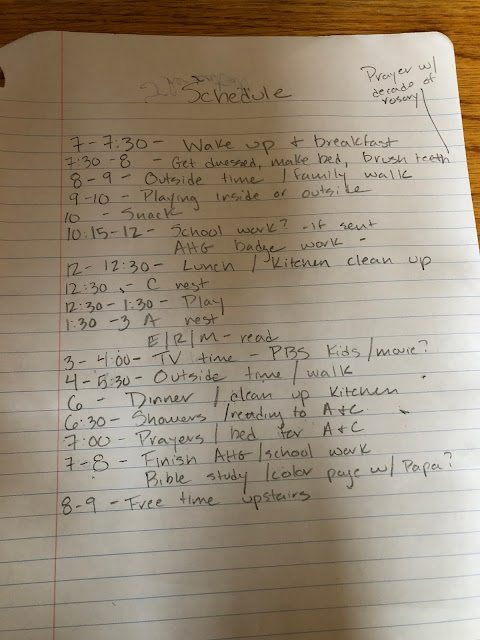 Schedule
Prayer w/
decade of
rosary
7-7:30 - Wake up + breakfast
7:30-8 - Get dressed, make bed, brush teeth
8-9 - Outside time / family walk
9-10 - Playing inside or outside
10 - Snack
10:15-12 - School work? - if sent
AHG badge work -
12-12:30 - Lunch / Kitchen clean up
12:30 - C rest
12:30-1:30 - Play
1:30-3 A rest
E/R/M - read
3-4:00 - TV time - PBS Kids/movie?
4-5:30 - Outside time / walk
6 - Dinner / clean up kitchen
6:30 - Showers /reading to A+C
7:00 - Prayers / bed for A+C
7-8 - Finish AHG /school work
Bible study /color page w/ Papa?
8-9 - Free time upstairs